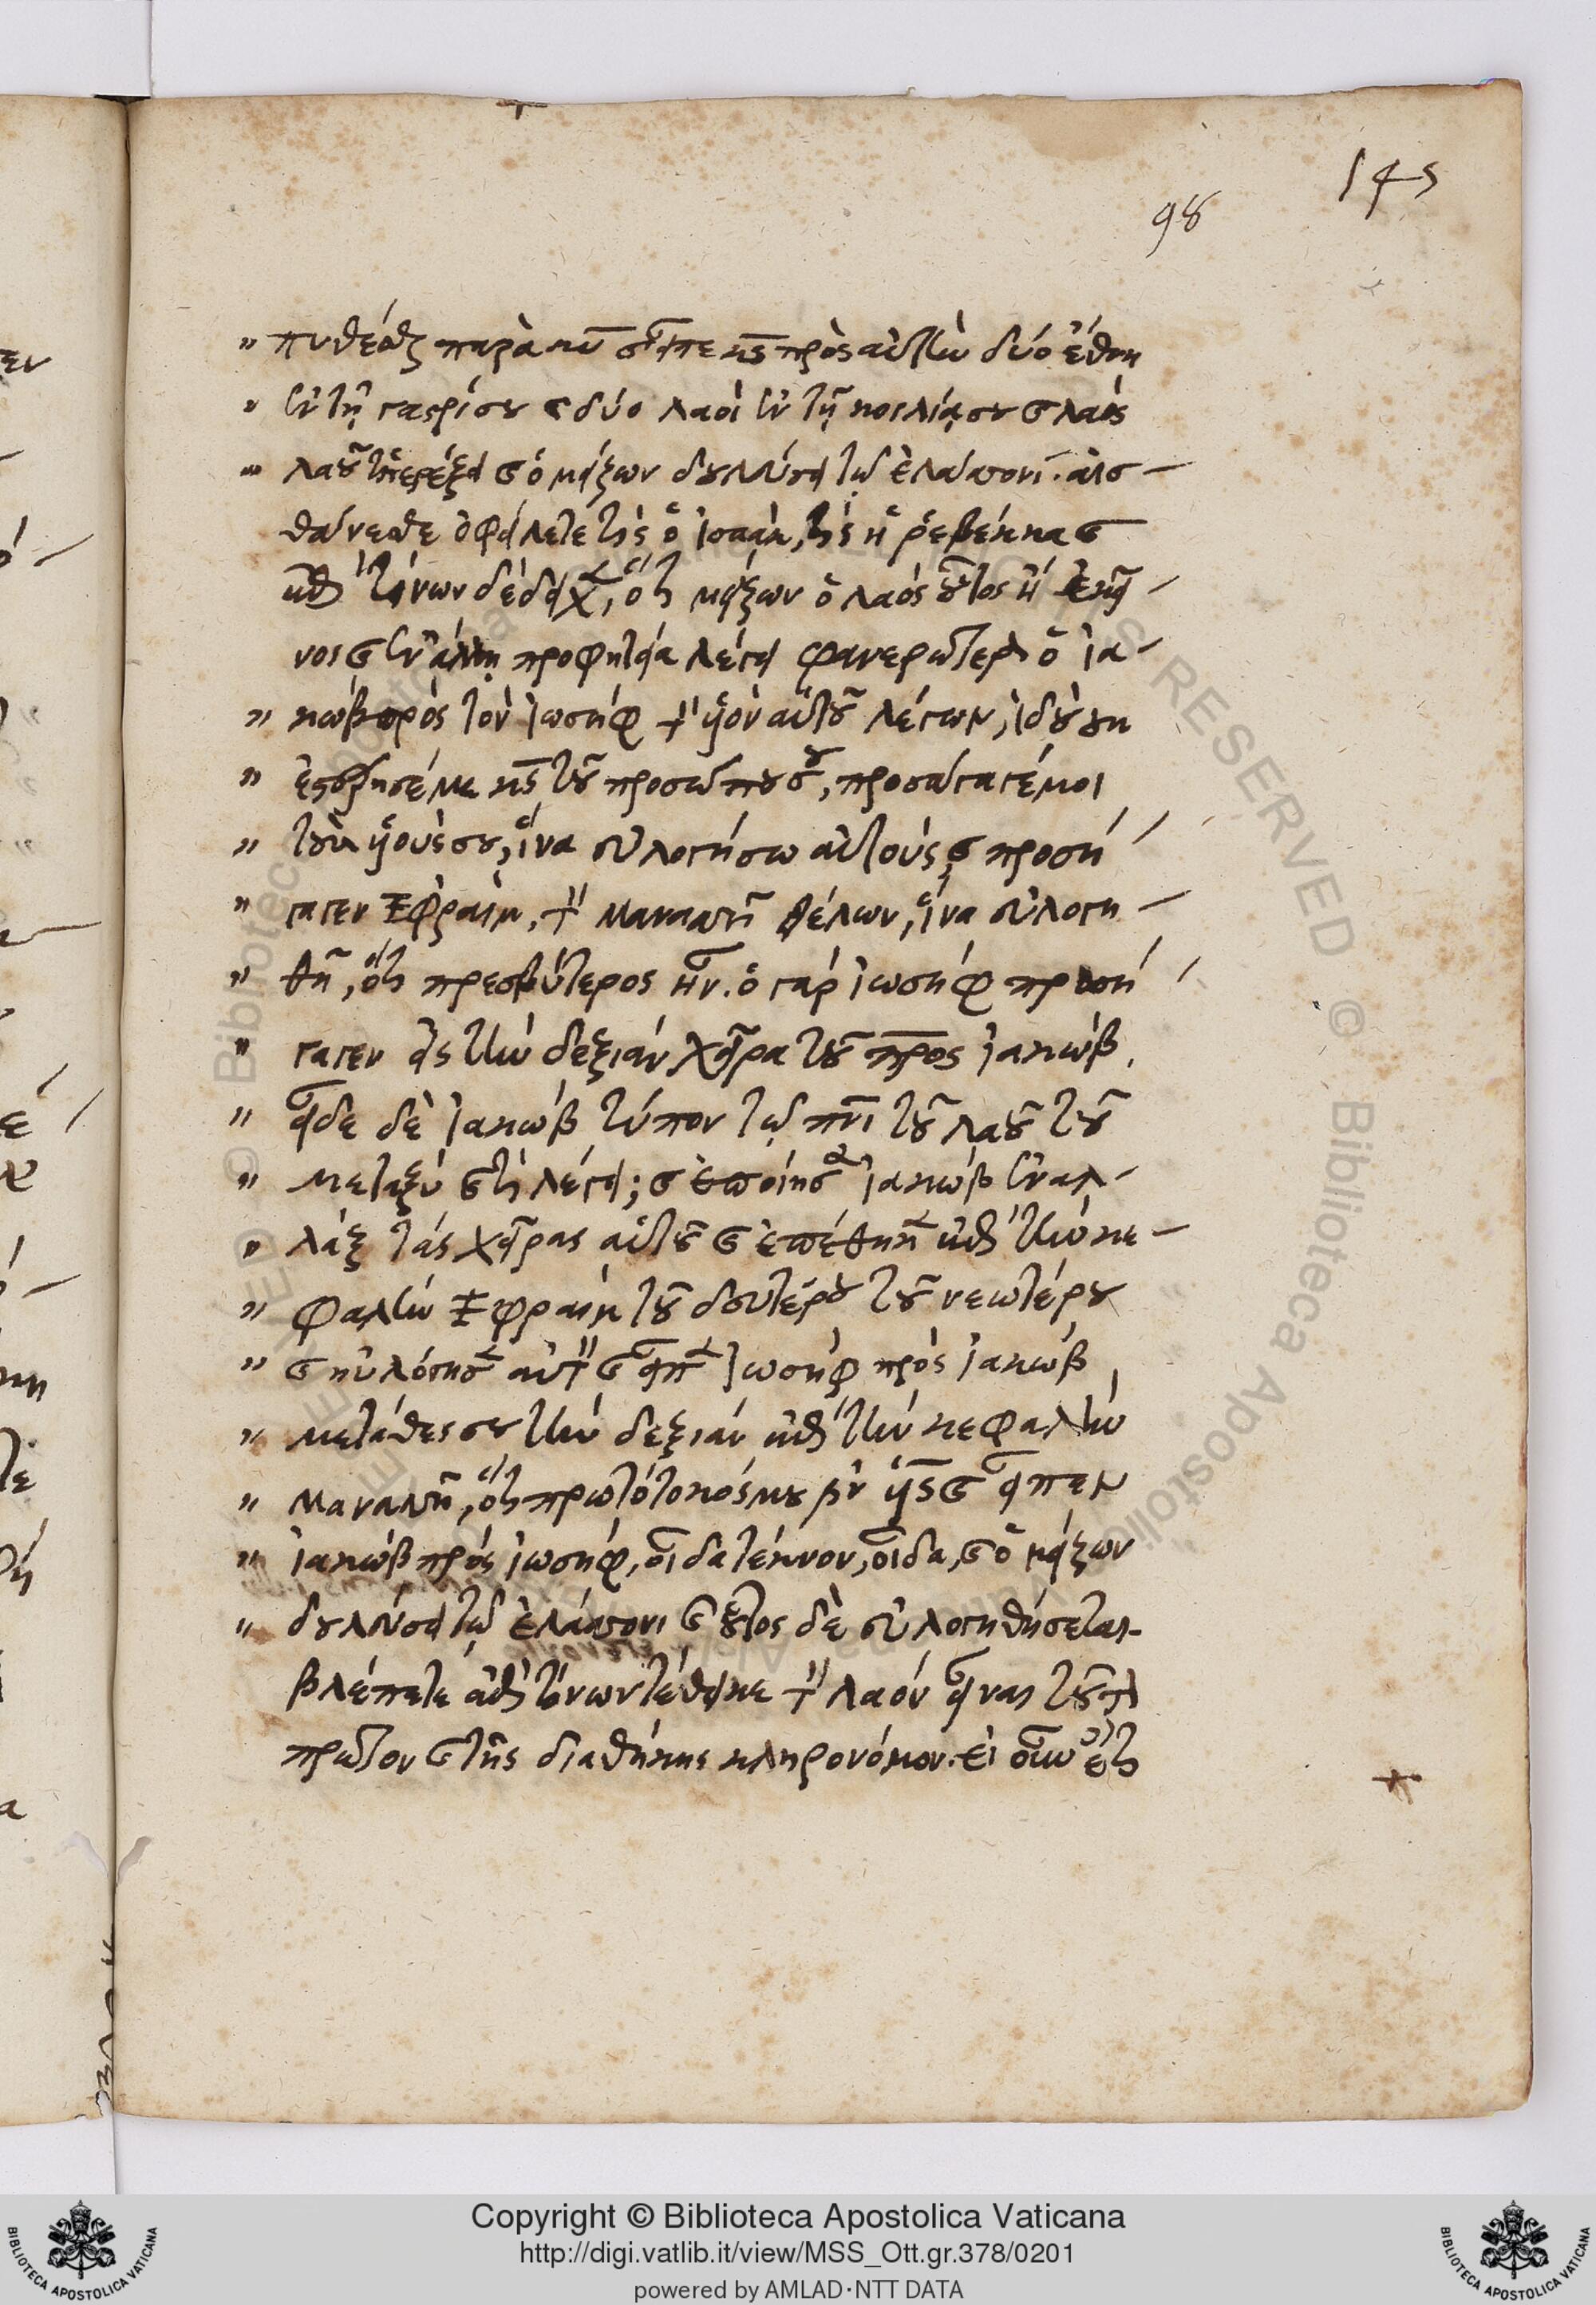 145
98
" πυθέσθαι παρὰ κυ καὶ εἶπε κς πρὸς αὐτὴν δύο ἔθνη
" ἐν τῇ γαστρί σου καὶ δύο λαοὶ ἐν τῇ κοιλίᾳ σου καὶ λαὸς
" λαοῦ ὑπερέξει καὶ ὁ μείζων δουλεύσει τῷ ἐλάσσονι. αἰσ-
θάνεσθε ὀφείλετε τίς ὁ ἰσαὰκ, τίς ἡ ῥεβέκκα καὶ
ἐπὶ τίνων δέδειχεν, ὅτι μείζων ὁ λαὸς οὗτος ἢ ἐκεῖ-
νος καὶ ἐν ἄλλῃ προφητείᾳ λέγει φανερώτερον ὁ ἰα-
" κὼβ πρὸς τὸν ἰωσὴφ τὸν υἱὸν αὐτοῦ λέγων, ἰδοὺ οὐκ
" ἐστέρησέ με κς τοῦ προσώπου σου, προσάγαγέ μοι
" τοὺς υἱούς σου, ἵνα εὐλογήσω αὐτούς, καὶ προσή
" γαγεν Ἐφραὶμ, τὸν Μανασσῆ θέλων, ἵνα εὐλογη-
" θῇ, ὅτι πρεσβύτερος ἦν. ὁ γὰρ ἰωσὴφ προσή
" γαγεν εἰς τὴν δεξιὰν χεῖρα τοῦ προς ἰακώβ.
" εἶδε δὲ ἰακὼβ τύπον τῷ πνι τοῦ λαοῦ τοῦ
" μεταξὺ καὶ τί λέγει; καὶ ἐποίησεν ἰακὼβ ἐναλ-
" λὰξ τὰς χεῖρας αὐτοῦ καὶ ἐπέθηκεν ἐπὶ τὴν κε-
" φαλὴν Ἐφραὶμ τοῦ δευτέρου τοῦ νεωτέρου
" καὶ ηὐλόγησεν αὐτὸν καὶ εἶπεν ἰωσὴφ πρὸς ἰακώβ
" μετάθες σου τὴν δεξιὰν ἐπὶ τὴν κεφαλὴν
" Μανασσῆ, ὅτι πρωτότοκός μου ἐστὶν υς καὶ εἶπεν
" ἰακὼβ πρὸς ἰωσήφ, οἶδα τέκνον, οἶδα, καὶ ὁ μείζων
" δουλεύσει τῷ ἐλάσσονι καὶ οὗτος δὲ εὐλογηθήσεται-
βλέπετε ἐπὶ τίνων τέθεικε τὸν λαὸν εἶναι τοῦτον
πρῶτον καὶ τῆς διαθήκης κληρονόμον. εἰ οὖν ἔτι
Copyright © Biblioteca Apostolica Vaticana
http://digi.vatlib.it/view/MSS_Ott.gr.378/0201
powered by AMLAD·NTT DATA